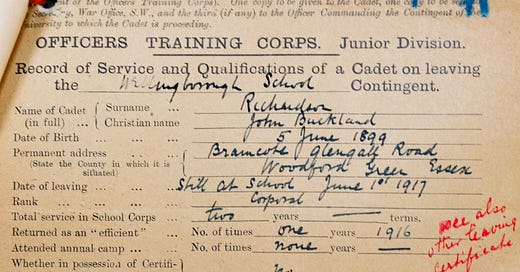 ent of the Officers Training Corps). One copy to be given to the Cadet, one copy to be sent
Secretary, War Office, S.W., and the third (if any) to the Officer Commanding the Contingent of the
University to which the Cadet is proceeding.
OFFICERS TRAINING CORPS. Junior Division.
Record of Service and Qualifications of a Cadet on leaving
the Wellingborough School Contingent.
Name of Cadet (in full) Surname Richardson
Christian name John Buckland
Date of Birth 5 June 1899
Permanent address Bramcote Glengall Road
(State the County in which it is situated) Woodford Green Essex
Date of leaving Still at School June 1st 1917
Rank Corporal
Total service in School Corps two years — terms.
Returned as an "efficient" No. of times one years 1916
Attended annual camp No. of times none years —
Whether in possession of Certifi- no
see also
other leaving
Certificate